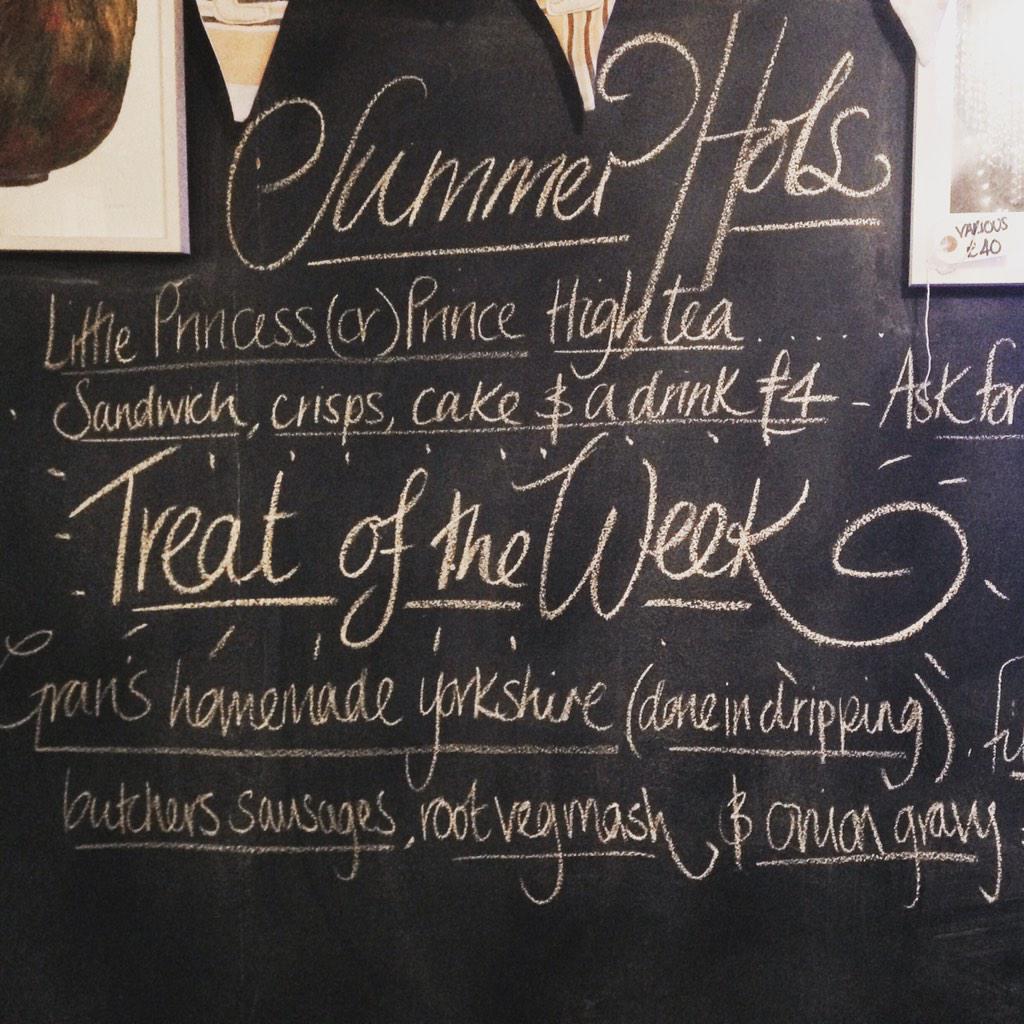 Summer Hols
VARIOUS
£40
Little Princess (or) Prince High tea ......
Sandwich, crisps, cake & a drink £4 - Ask for
Treat of the Week
Gran's homemade yorkshire (done in dripping).
butchers sausages, root veg mash, & onion gravy